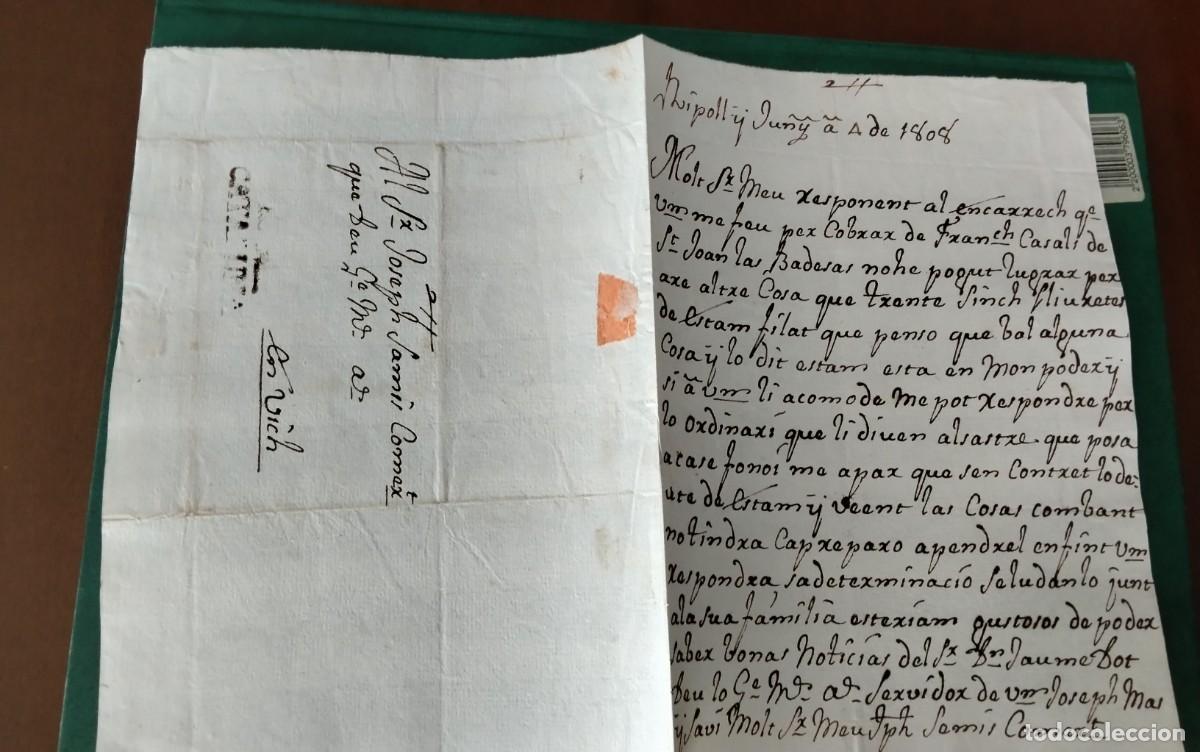 Al Sr. Joseph Samis Comert
que Deu Ge. Ms. as.
En Vich
CATALUÑA
Ripoll ÿ Juny â 4 de 1808
Molt Sr. Meu responent al encarrech qe.
Vm me feu per Cobrar de Franch. Casals de
St. Joan las Badesas nohe pogut lugrar per
are altre Cosa que trente sinch lliuretes
de Estam filat que penso que bal alguna
Cosa ÿ lo dit estam esta en Mon poder ÿ
si â Vm li acomode me pot respondre per
lo ordinari que li diuen alsastre que posa
a case fonoi me apar que sen Contret lo de:
ute de Estam ÿ veent las Cosas com bant
notindra Cap reparo a pendrel enfint Vm
respondra sa determinació seludanlo junt
ala sua família esteriam gustosos de poder
saber bonas Notícias del Sr. Dn. Jaume Bot
Deu lo Ge. Ms. as. Servidor de Vm Joseph Mas
ÿ Savi Molt Sr. Meu Jph Semis Comert
2200003796063
todocoleccion